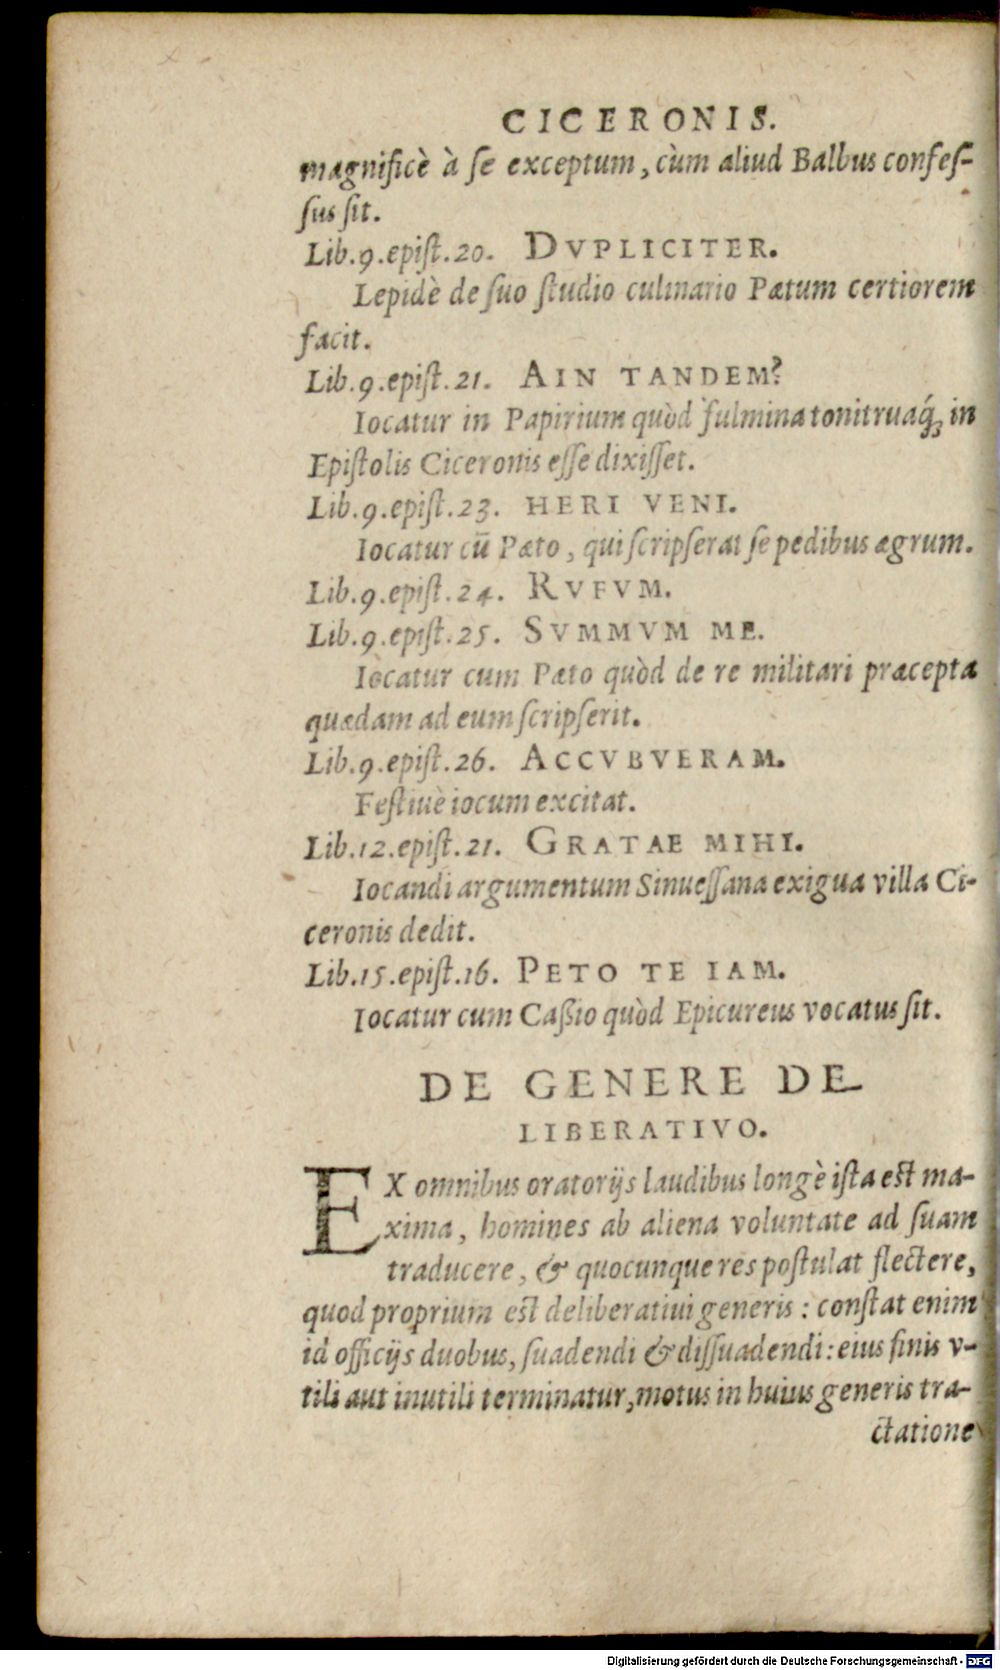 CICERONIS.
magnificè à se exceptum, cùm aliud Balbus confes-
sus sit.
Lib.9.epist.20. DVPLICITER.
Lepidè de suo studio culinario Pætum certiorem
facit.
Lib.9.epist.21. AIN TANDEM?
Iocatur in Papirium quòd fulmina tonitruaq́; in
Epistolis Ciceronis esse dixisset.
Lib.9.epist.23. HERI VENI.
Iocatur cū Pæto, qui scripserat se pedibus ægrum.
Lib.9.epist.24. RVFVM.
Lib.9.epist.25. SVMMVM ME.
Iocatur cum Pæto quòd de re militari præcepta
quædam ad eum scripserit.
Lib.9.epist.26. ACCVBVERAM.
Festiuè iocum excitat.
Lib.12.epist.21. GRATAE MIHI.
Iocandi argumentum Sinuessana exigua villa Ci-
ceronis dedit.
Lib.15.epist.16. PETO TE IAM.
Iocatur cum Caßio quòd Epicureus vocatus sit.
DE GENERE DE-
LIBERATIVO.
EX omnibus oratorijs laudibus longè ista est ma-
xima, homines ab aliena voluntate ad suam
traducere, & quocunque res postulat flectere,
quod proprium est deliberatiui generis : constat enim
id officijs duobus, suadendi & dissuadendi: eius finis v-
tili aut inutili terminatur, motus in huius generis tra-
ctatione
Digitalisierung gefördert durch die Deutsche Forschungsgemeinschaft - DFG